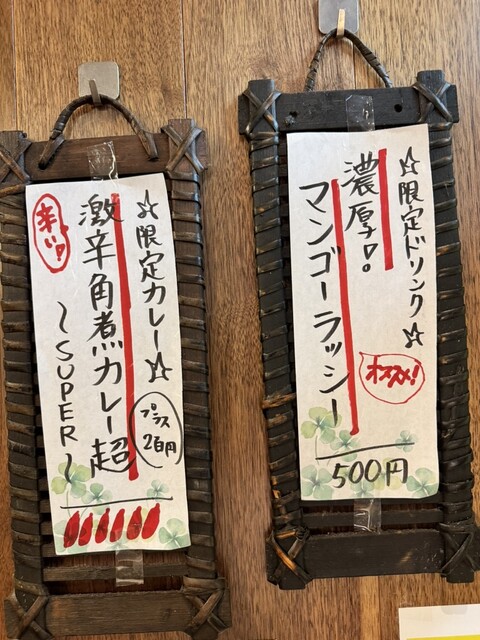 ☆限定ドリンク☆
濃厚!
マンゴーラッシー
オススメ!
500円
☆限定カレー☆
プラス
200円
激辛角煮カレー超
〜SUPER〜
辛い!